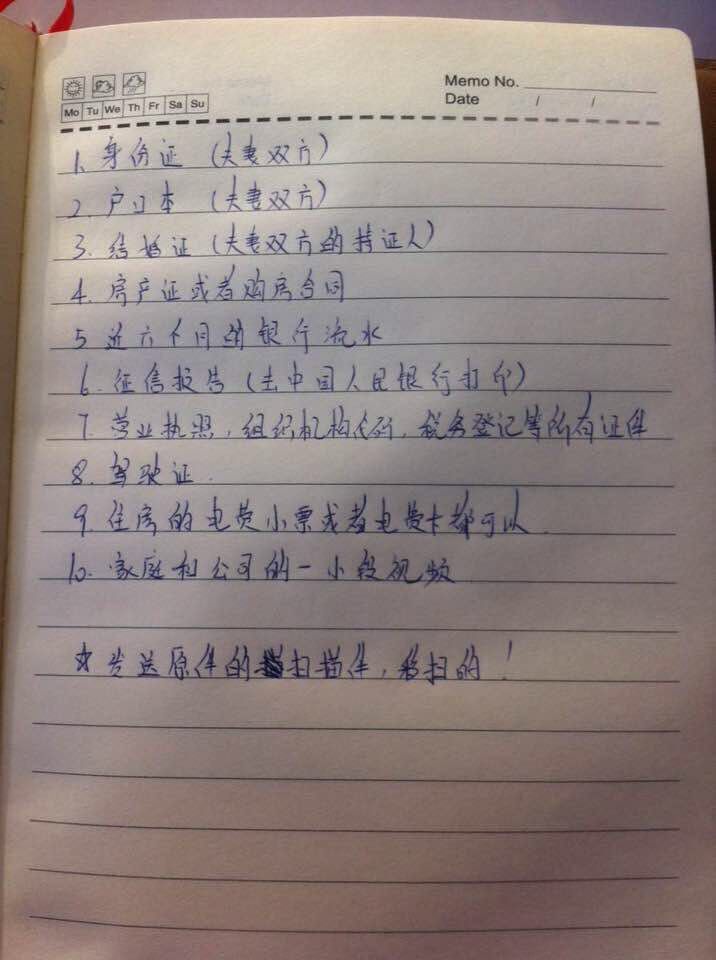 Memo No.
Mo Tu We Th Fr Sa Su
Date / /
1. 身份证 (夫妻双方)
2. 户口本 (夫妻双方)
3. 结婚证 (夫妻双方的持证人)
4. 房产证或者购房合同
5 近六个月的银行流水
6. 征信报告 (去中国人民银行打印)
7. 营业执照, 组织机构代码, 税务登记等所有证件
8. 驾驶证.
9. 住房的电费小票或者电费卡都可以
10. 家庭和公司的一小段视频
☆ 发送原件的扫描件, 彩扫的!